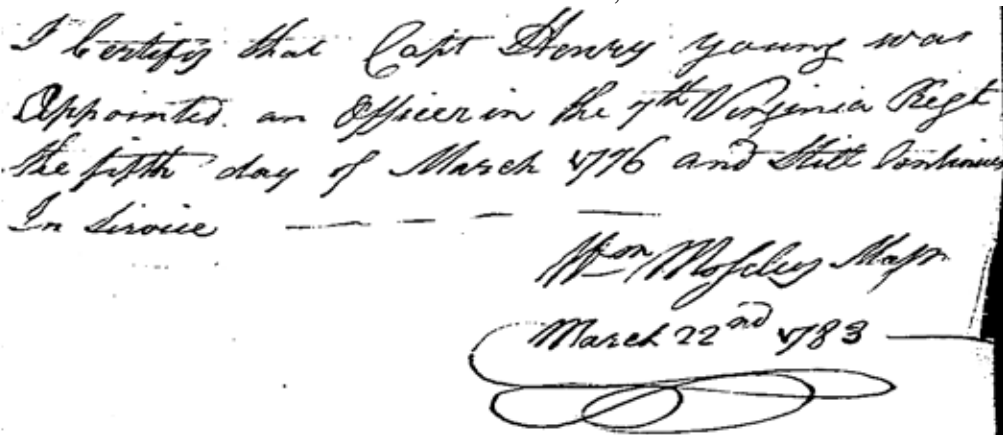 I Certify that Capt Henry young was
Appointed. an Officer in the 7th Virginia Regt
the fifth day of March 1776 and Still Continues
In Service — — — — —
Wm Moseley Majr
March 22nd 1783 —